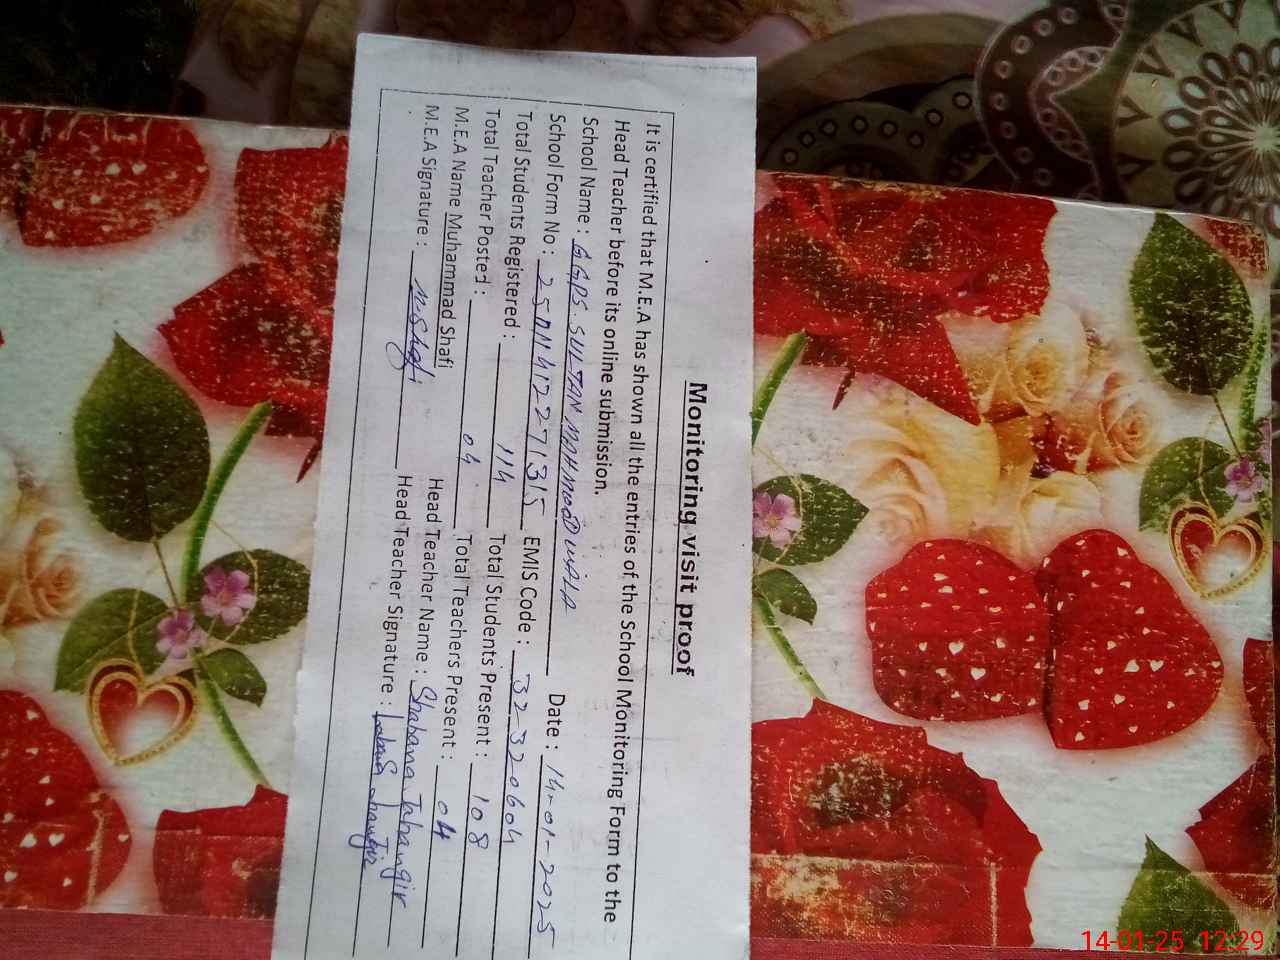 Monitoring visit proof
It is certified that M.E.A has shown all the entries of the School Monitoring Form to the
Head Teacher before its online submission.
School Name : GGPS SULTAN MAHMOOD WALA Date : 14-01-2025
School Form No : 25 EMIS Code : 32320604
Total Students Registered : 114 Total Students Present : 108
Total Teacher Posted : 04 Total Teachers Present : 04
M.E.A Name Muhammad Shafi Head Teacher Name : Shabana Jahangir
M.E.A Signature : M.Shafi Head Teacher Signature :
14-01-25 12:29